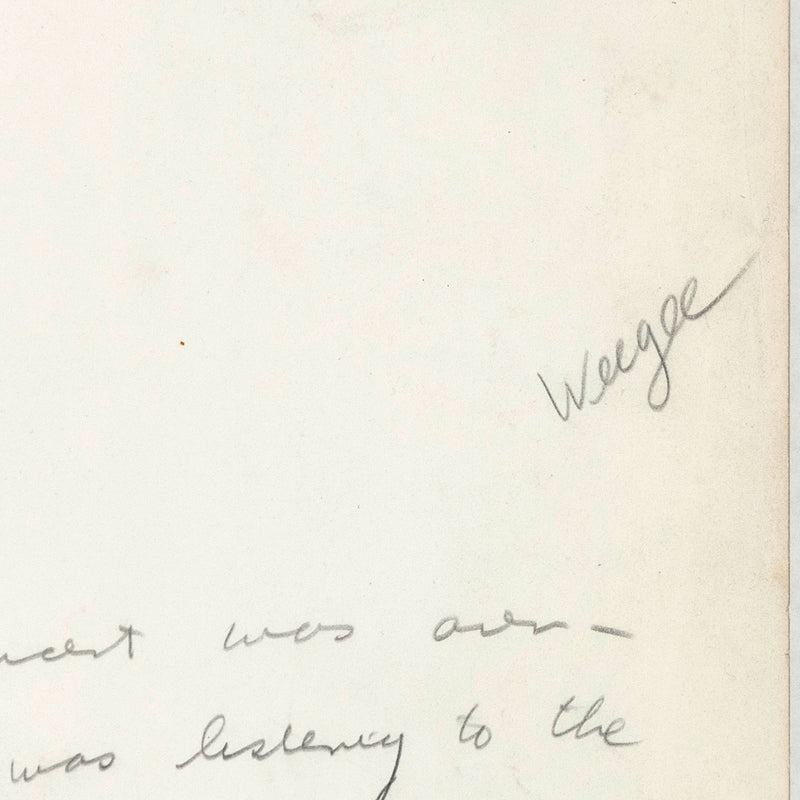 Weegee
was over—
was listening to the